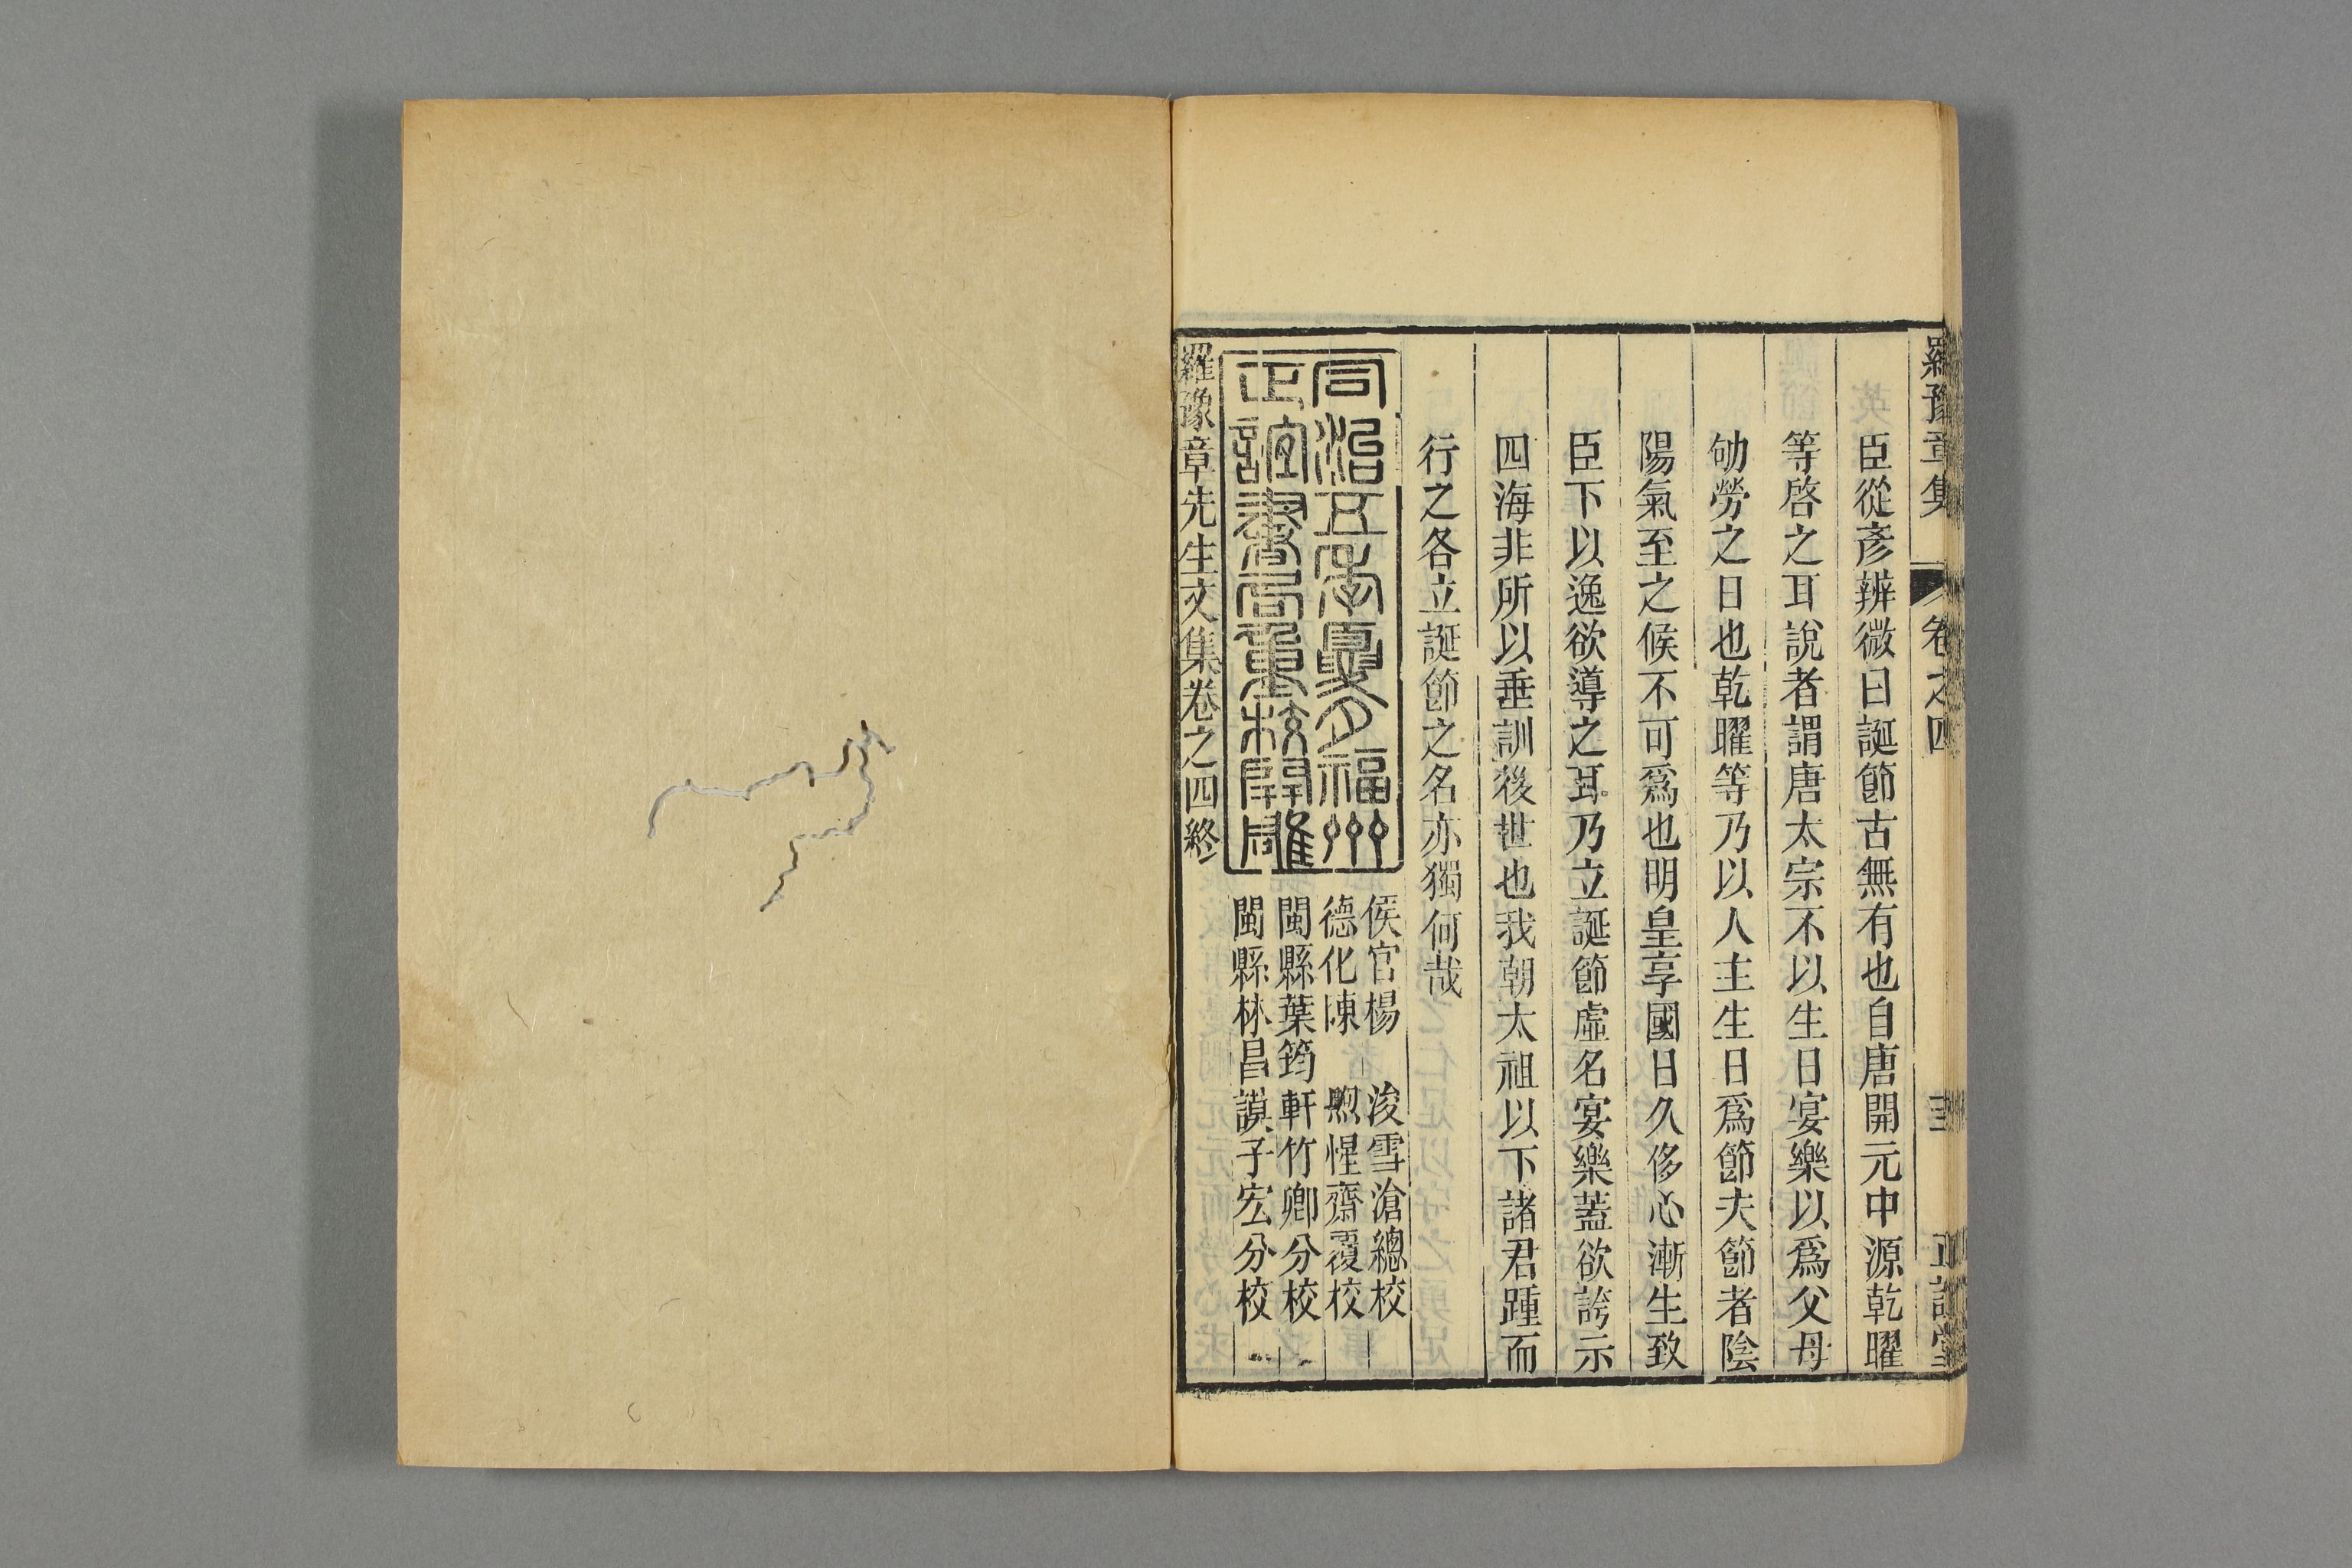 羅豫章集 卷之四 正誼堂
臣從彥辨微曰誕節古無有也自唐開元中源乾曜
等啓之耳說者謂唐太宗不以生日宴樂以爲父母
劬勞之日也乾曜等乃以人主生日爲節夫節者陰
陽氣至之候不可爲也明皇享國日久侈心漸生致
臣下以逸欲導之耳乃立誕節虛名宴樂蓋欲誇示
四海非所以垂訓後世也我朝太祖以下諸君踵而
行之各立誕節之名亦獨何哉
同治五年夏月福州
正誼書局重校開雕
侯官楊 浚雪滄總校
德化陳 煦惺齋覆校
閩縣葉筠軒竹卿分校
閩縣林昌謨子宏分校
羅豫章先生文集卷之四終